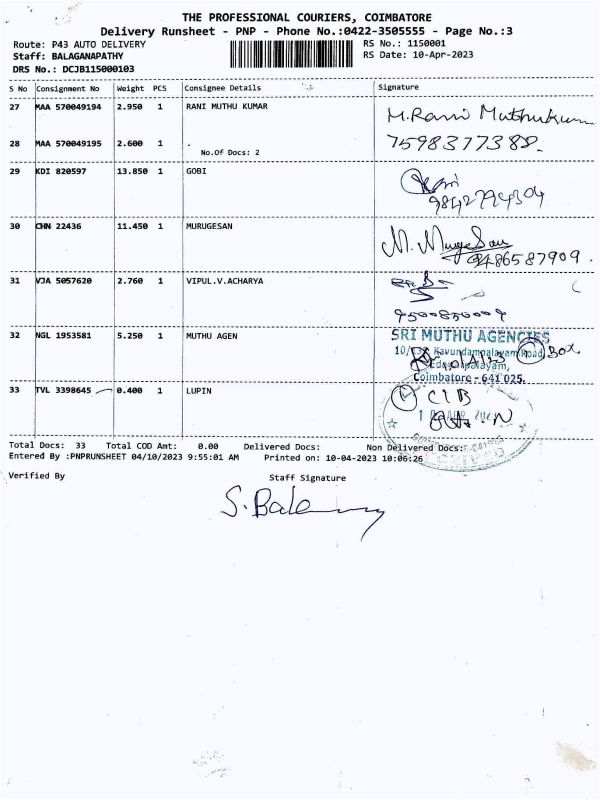 THE PROFESSIONAL COURIERS, COIMBATORE
Delivery Runsheet - PNP - Phone No.:0422-3505555 - Page No.:3
Route: P43 AUTO DELIVERY RS No.: 1150001
Staff: BALAGANAPATHY RS Date: 10-Apr-2023
DRS No.: DCJB115000103
S No Consignment No Weight PCS Consignee Details Signature
27 MAA 570049194 2.950 1 RANI MUTHU KUMAR M.Rani Muthukum
28 MAA 570049195 2.600 1 . 7598377388.
No.Of Docs: 2
29 KDI 820597 13.850 1 GOBI
30 CHN 22436 11.450 1 MURUGESAN M. MurugeSan
9486587909.
31 VJA 5057620 2.760 1 VIPUL.V.ACHARYA
9500850009
32 NGL 1953581 5.250 1 MUTHU AGEN SRI MUTHU AGENCIES
Kavundampalayam Road, Box
Edayarpalayam,
Coimbatore - 641 025.
33 TVL 3398645 0.400 1 LUPIN 1 CIB
Total Docs: 33 Total COD Amt: 0.00 Delivered Docs: Non Delivered Docs:
Entered By :PNPRUNSHEET 04/10/2023 9:55:01 AM Printed on: 10-04-2023 10:06:26
Verified By Staff Signature